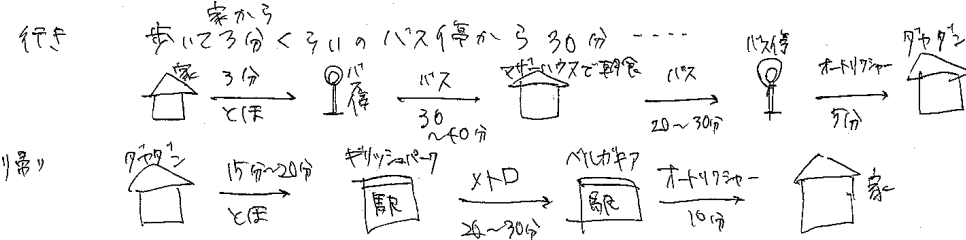 家から
行き 歩いて3分くらいの バス停から 30分 ‥‥
家 3分 とほ バス停 バス 30～40分 マザーハウスで朝食 バス 20～30分 バス停 オートリクシャー 5分 ダヤダン
帰り ダヤダン 15分～20分 とほ ギリッシュパーク 駅 メトロ 20～30分 ベルガキア 駅 オートリクシャー 10分 家